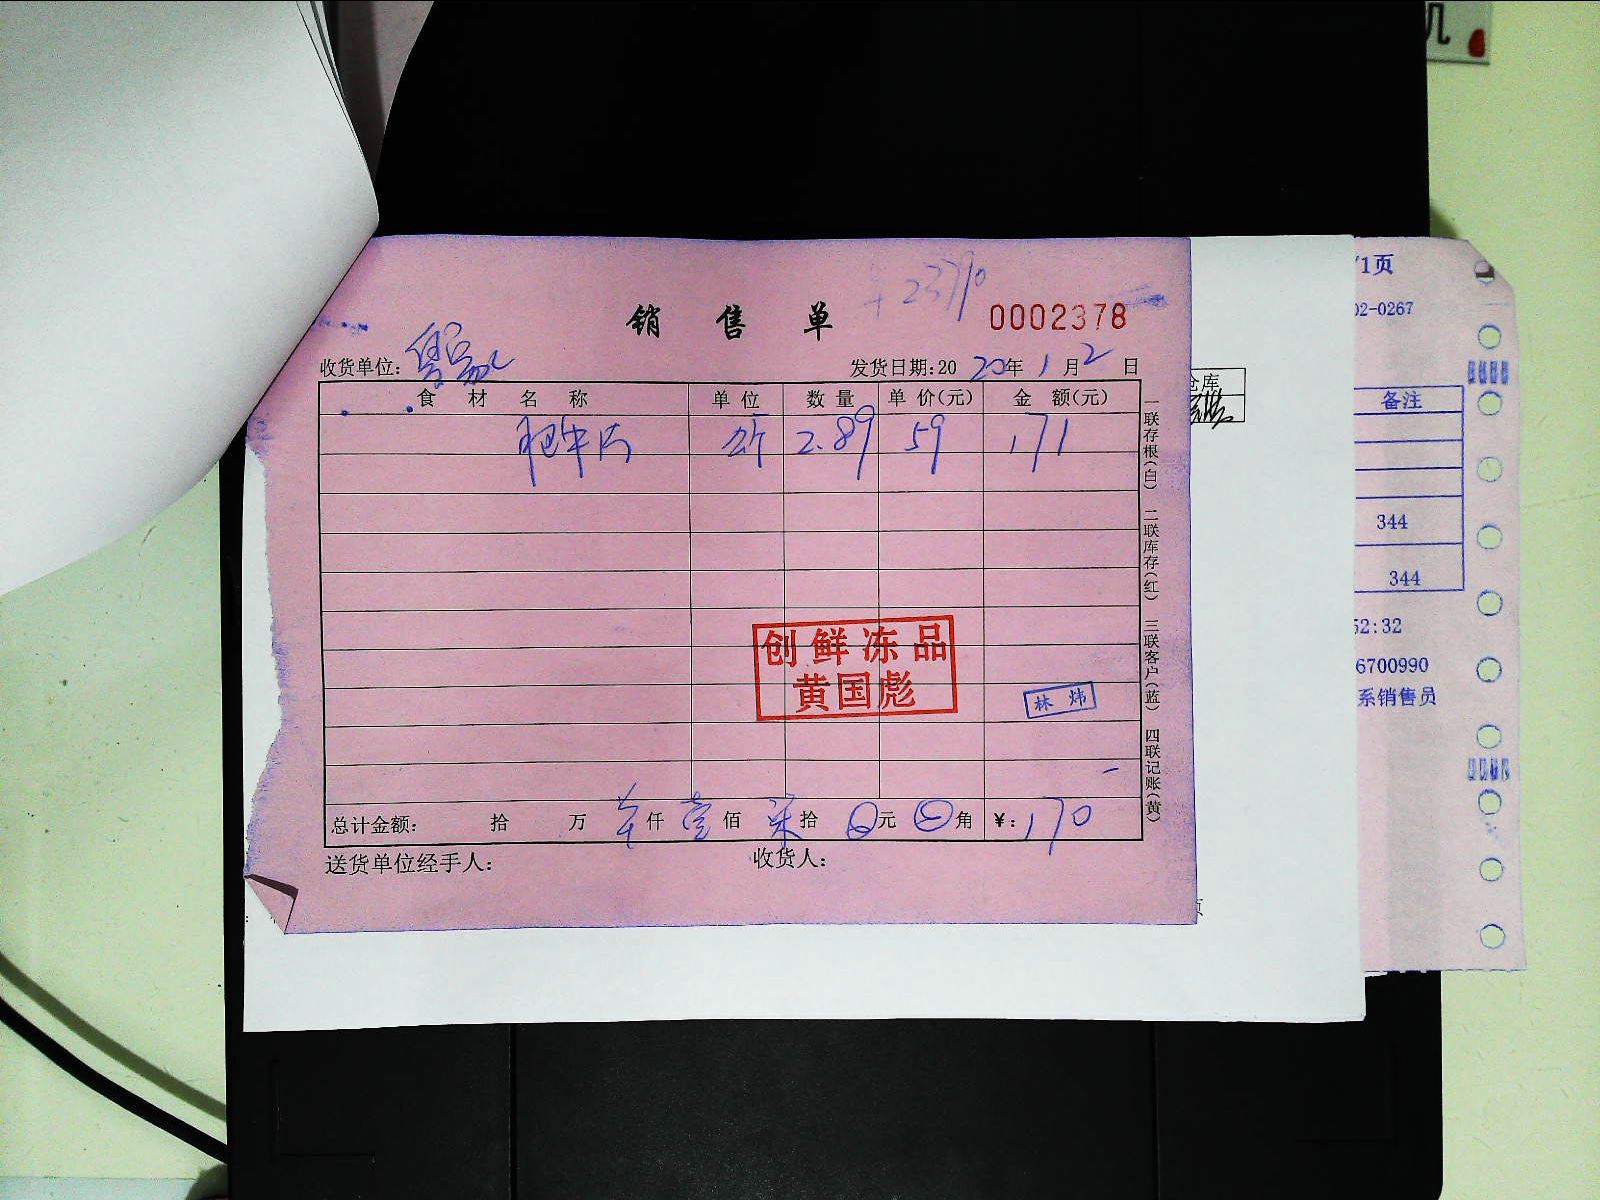 几
/1页
销售单
0002378
02-0267
收货单位:
发货日期:2020年1月2日
仓库
食材名称 单位 数量 单价(元) 金额(元)
备注
肥牛片 斤 2.89 59 171
344
344
创鲜冻品
黄国彪
52:32
6700990
系销售员
林炜
一联存根(白) 二联库存(红) 三联客户(蓝) 四联记账(黄)
总计金额: 拾 万 仟壹佰柒拾 元 角 ¥:170
送货单位经手人: 收货人: